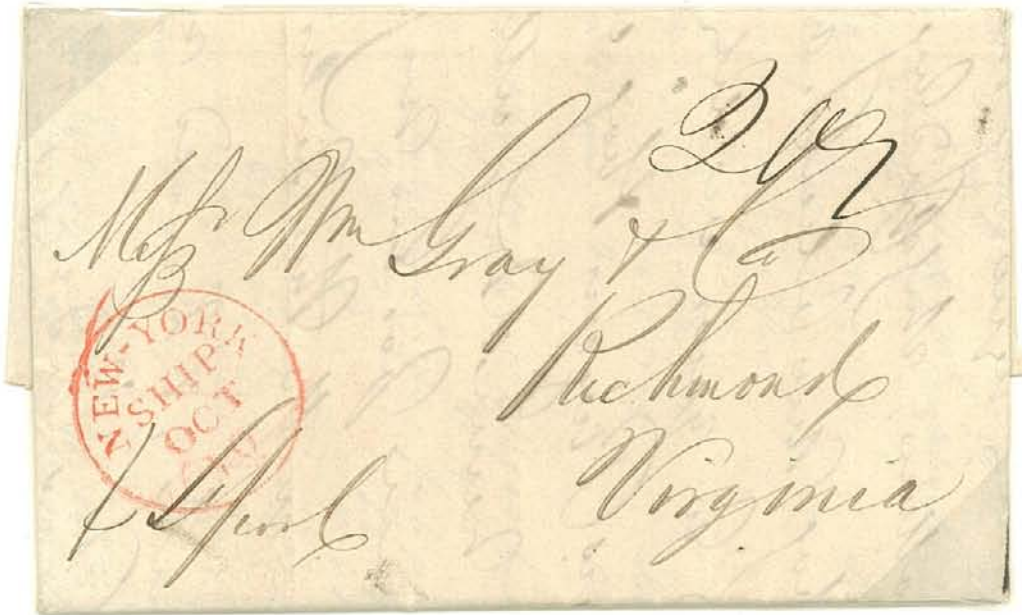 Messr Wm Gray & Co
Richmond
Virginia
NEW-YORK
SHIP
OCT